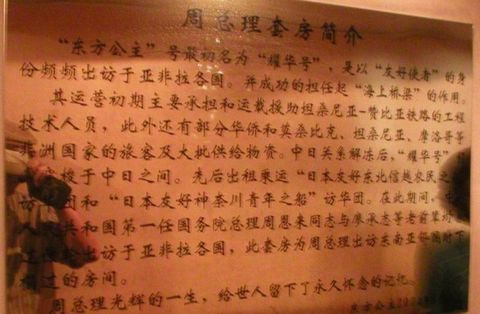 周总理套房简介
“东方公主”号最初名为“耀华号”，是以“友好使者”的身
份频频出访于亚非拉各国。并成功的担任起“海上桥梁”的作用。
其运营初期主要承担和运载援助坦桑尼亚-赞比亚铁路的工程
技术人员，此外还有部分华侨和莫桑比克、坦桑尼亚、摩洛哥等
非洲国家的旅客及大批供给物资。中日关系解冻后，“耀华号”
梭于中日之间。先后出租乘运“日本友好东北信越农民之
访 团和“日本友好神奈川青年之船”访华团。在此期间，
人 共和国第一任国务院总理周恩来同志与廖承志等老前辈
出访于亚非拉各国，此套房为周总理出访东南亚 国时下
榻过的房间。
周总理光辉的一生，给世人留下了永久怀念的记忆。
东方公主